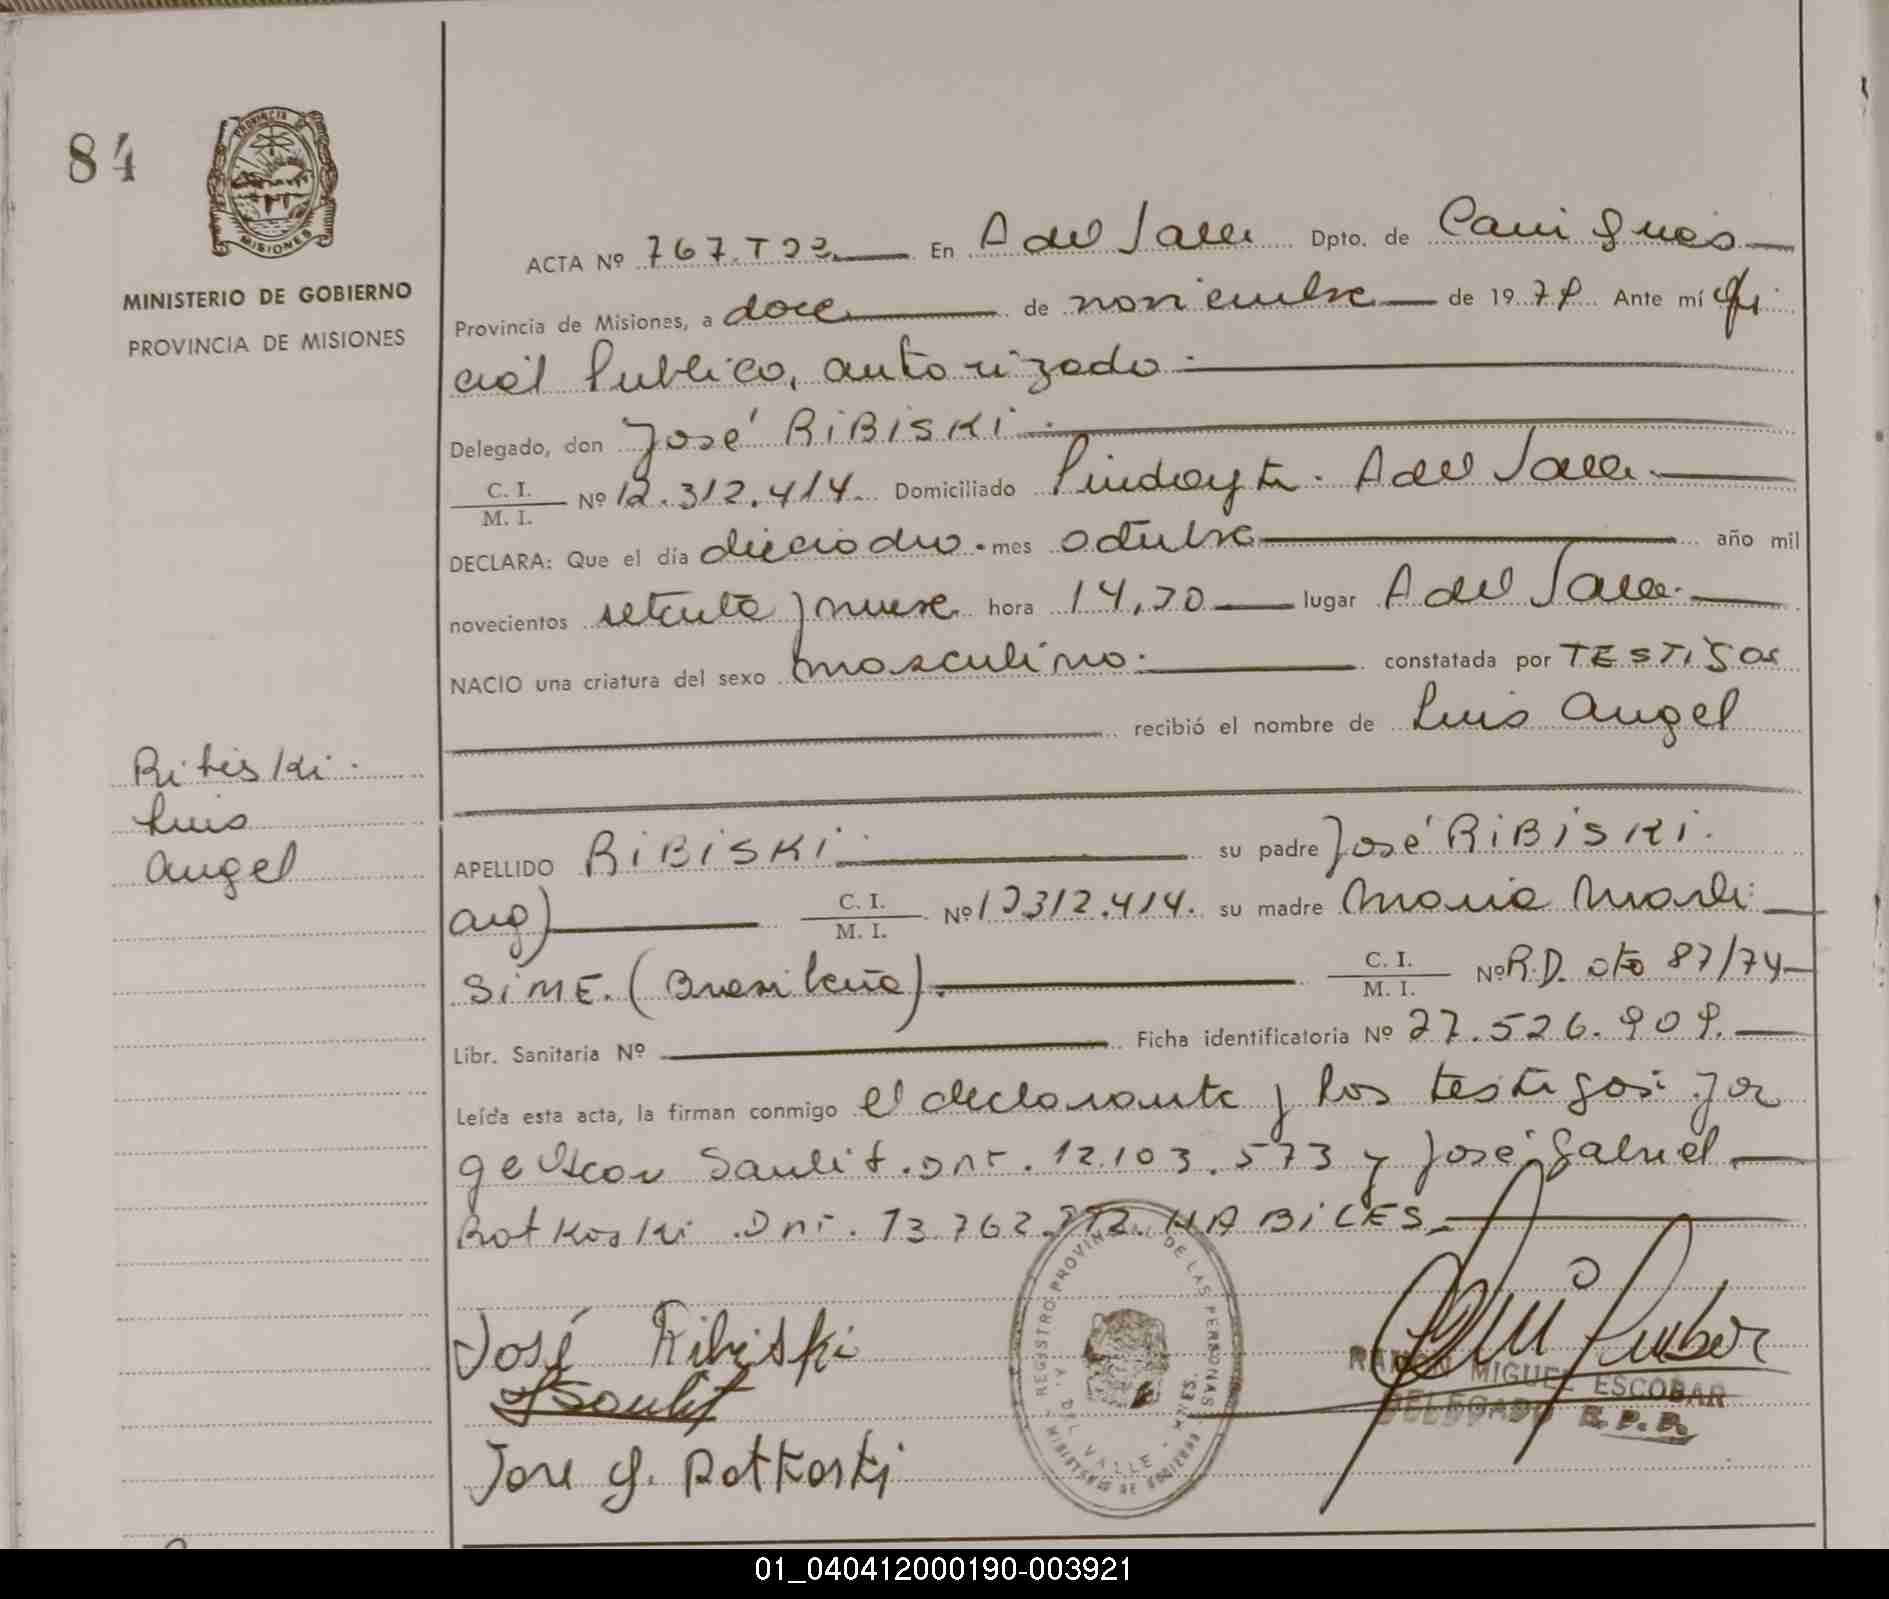 84
PROVINCIA DE
MISIONES
MINISTERIO DE GOBIERNO
PROVINCIA DE MISIONES
ACTA Nº 767.T En A del Valle Dpto. de Cainguás
Provincia de Misiones, a doce de noviembre de 1979 Ante mí Ofi
cial Publico, autorizado
Delegado, don José RiBiSKi
C. I. / M. I. Nº 12.312.414. Domiciliado Pindayti. A del Valle
DECLARA: Que el día dieciocho. mes octubre año mil
novecientos setenta y nueve hora 14,30 lugar A del Valle.
NACIO una criatura del sexo masculino. constatada por TESTiGOS
recibió el nombre de Luis Angel
Ribiski.
Luis
Angel
APELLIDO RiBiSKi su padre José RiBiSKi.
arg) C. I. / M. I. Nº 12312.414. su madre Maria Marli
SiME. (Brasileña). C. I. / M. I. Nº R.D. 87/74
Libr. Sanitaria Nº Ficha identificatoria Nº 27.526.909.
Leída esta acta, la firman conmigo el declarante y los testigos: Jor
ge Oscar Saulit. DNI. 12.103.573 y José Gabriel
Rotkoski. DNI. 13.762. HABiLES.
José Ribiski
JSaulit
Jose G. Rotkoski
REGISTRO PROVINCIAL DE LAS PERSONAS
A. DEL VALLE - MNES.
MINISTERIO DE GOBIERNO
RAMON MIGUEL ESCOBAR
DELEGADO R.P.P.
01_040412000190-003921